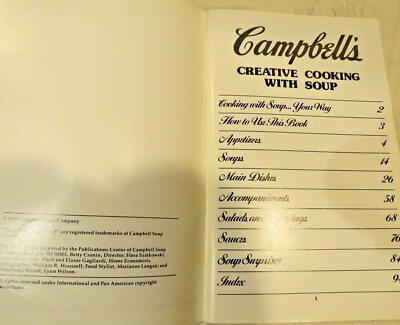 Company
are registered trademarks of Campbell Soup
prepared by the Publications Center of Campbell Soup
Betty Cronin, Director: Flora Szatkowski,
Ward and Elaine Gagliardi, Home Economists.
William R. Houssell; Food Stylist, Marianne Langan; and
Lynn Wilson.
rights reserved under International and Pan American copyright
Campbell's
CREATIVE COOKING
WITH SOUP
Cooking with Soup...Your Way 2
How to Use This Book 3
Appetizers 4
Soups 14
Main Dishes 26
Accompaniments 58
Salads and 68
Sauces 76
Soup Surprises
Index
1